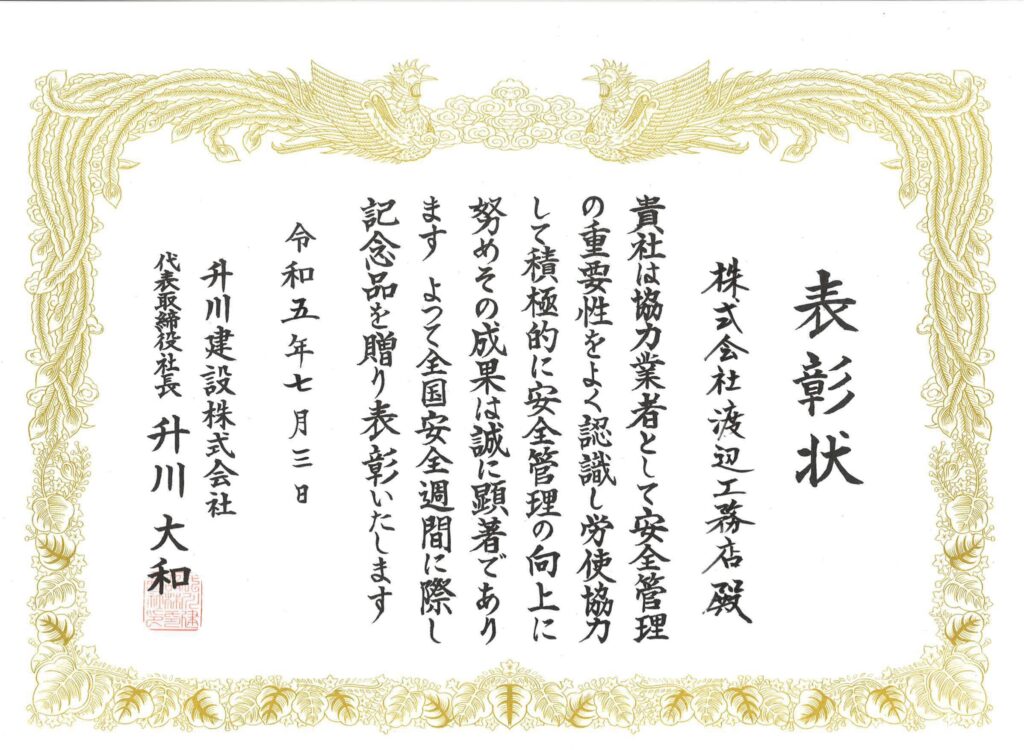 表彰状
株式会社渡辺工務店殿
貴社は協力業者として安全管理
の重要性をよく認識し労使協力
して積極的に安全管理の向上に
努めその成果は誠に顕著であり
ます よつて全国安全週間に際し
記念品を贈り表彰いたします
令和五年七月三日
升川建設株式会社
代表取締役社長 升川大和